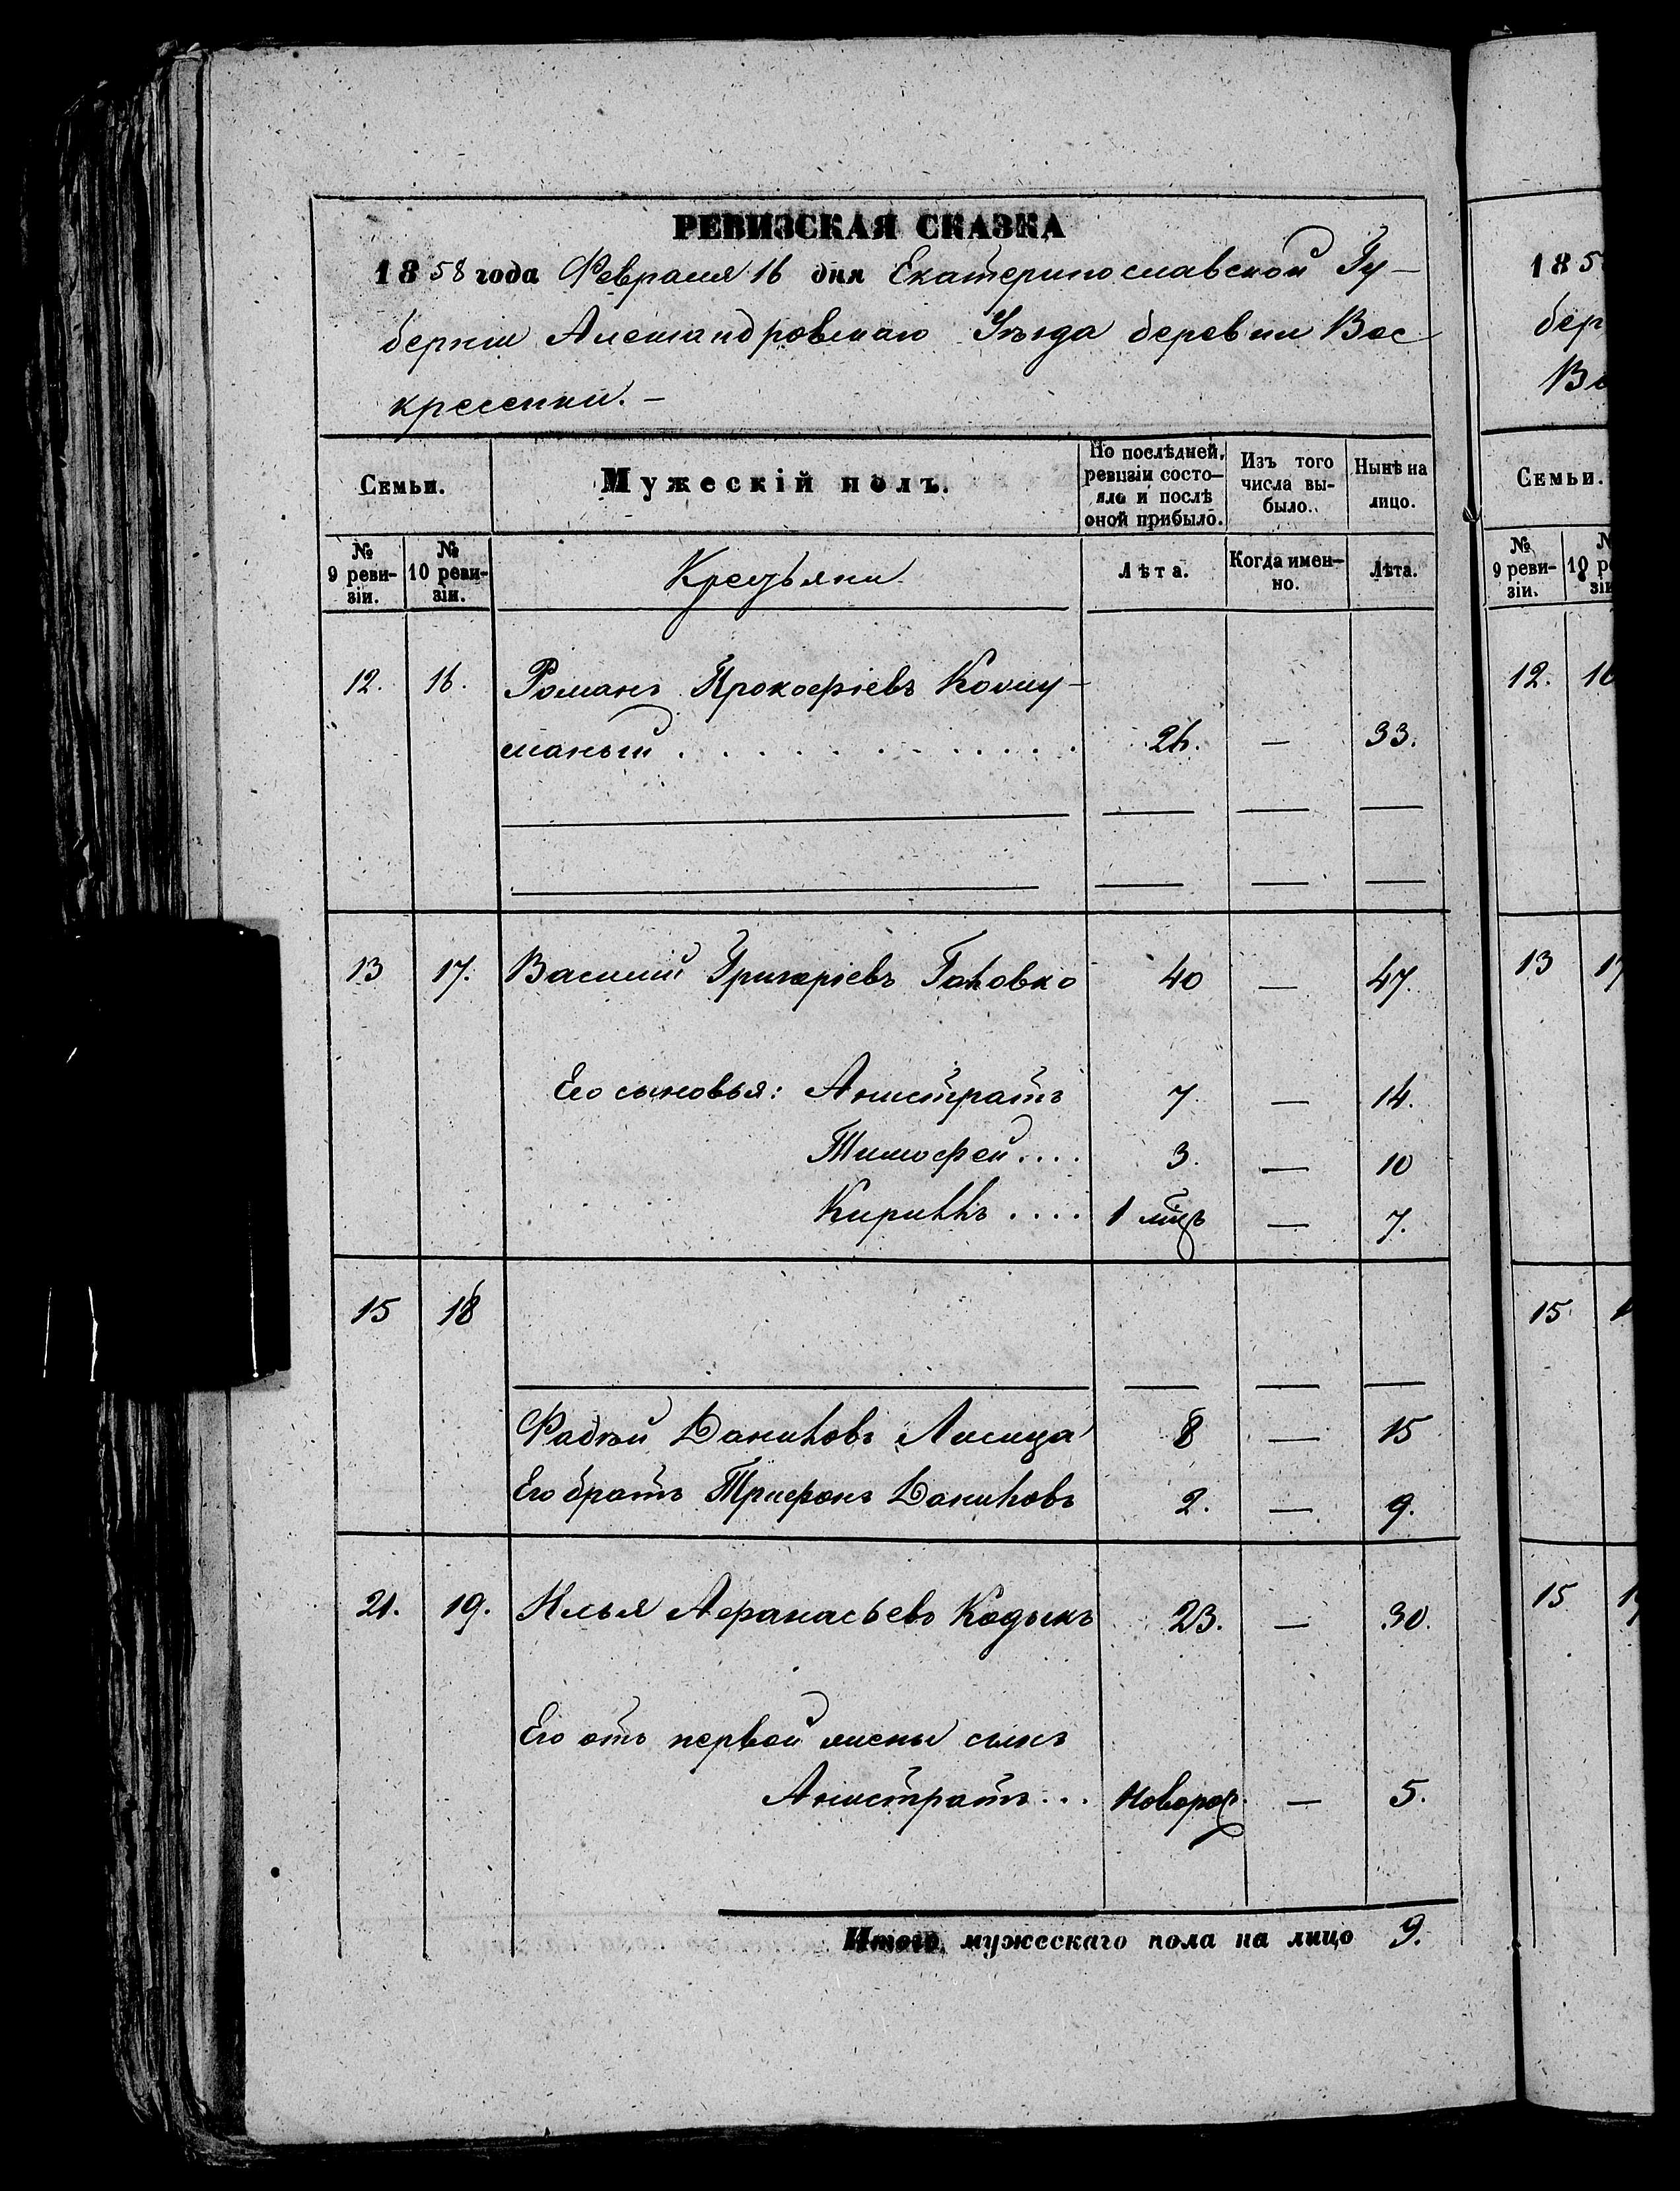 РЕВИЗСКАЯ СКАЗКА
1858 года Февраля 16 дня Екатеринославской Гу-
берніи Александровскаго Уѣзда деревни Вос
кресенки.-
Семьи.
Мужескій полъ.
По послѣдней ревизіи состо-
яло и послѣ
оной прибыло.
Изъ того
числа вы-
было.
Нынѣ на
лицо.
№
9 реви-
зіи.
№
10 реви-
зіи.
Крестьяни
Лѣта.
Когда имен-
но.
Лѣта.
12. 16. Романъ Прокофіевъ
26. — 33.
13 17. Василій Григоріевъ Головко 40 — 47.
Его сыновья: Анистратъ 7 — 14.
Тимофей.... 3. — 10
Кирилъ.... 1 мѣц — 7.
15 18
Фадѣй Даниловъ Лисица 8 — 15
Его братъ Трифонъ Даниловъ 2. — 9.
21. 19. Илья Афанасьевъ Кодыкъ 23. — 30.
Его отъ первой жены сынъ
Анистратъ... новорож. — 5.
Итого мужескаго пола на лицо 9.
185
бер
Во
Семьи.
№
9 реви-
зіи.
12. 16
13 17
15
15